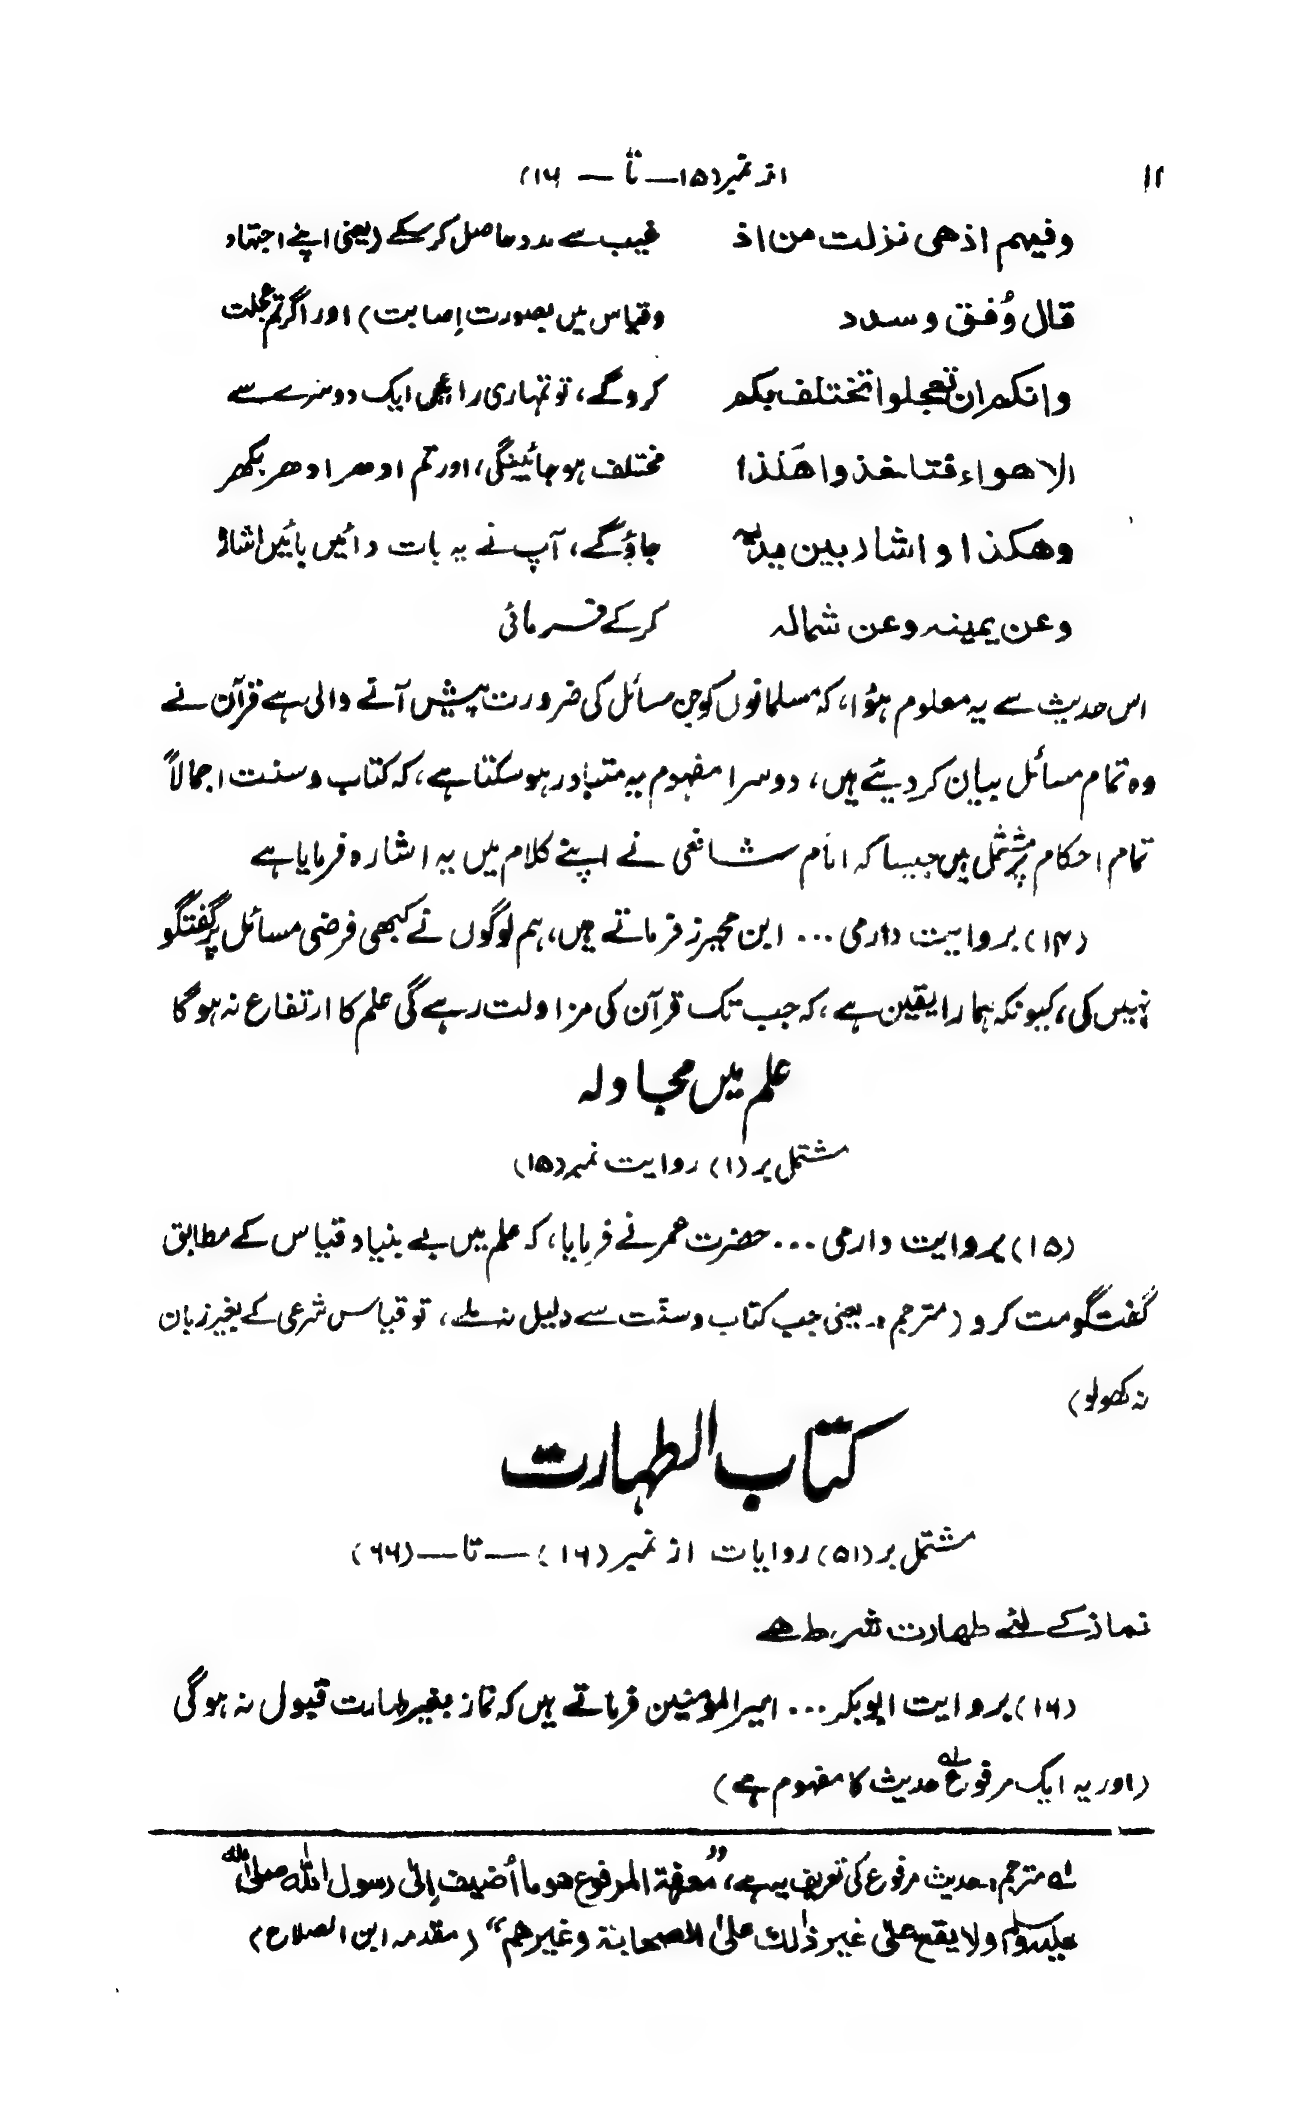 ۱۱
از نمبر (۱۵ — تا — ۱۶)
وفیهم اذ هی نزلت من اذ
غیب سے مدد حاصل کر سکے (یعنی اپنے اجتہاد
قال وُفق وسدد
وقیاس میں بصورت اِصابت) اور اگر تم عجلت
وانکم ان تعجلوا تختلف بکم
کروگے، تو تمہاری رائیں ایک دوسرے سے
الاهواء فتاخذوا هٰکذا
مختلف ہو جائینگی، اور تم ادھر ادھر بکھر
وهکذا و اشار بین یدیه
جاؤگے، آپ نے یہ بات دائیں بائیں اشارہ
وعن یمینه وعن شماله
کر کے فرمائی
اس حدیث سے یہ معلوم ہؤا، کہ مسلمانوں کو جن مسائل کی ضرورت پیش آنے والی ہے قرآن نے
وہ تمام مسائل بیان کر دیئے ہیں، دوسرا مفہوم یہ متبادر ہو سکتا ہے، کہ کتاب وسنت اجمالاً
تمام احکام پر مشتمل ہیں جیسا کہ امام شافعی نے اپنے کلام میں یہ اشارہ فرمایا ہے
(۱۴) بروایت دارمی ... ابن محیرز فرماتے ہیں، ہم لوگوں نے کبھی فرضی مسائل پر گفتگو
نہیں کی، کیونکہ ہمارا یقین ہے، کہ جب تک قرآن کی مزاولت رہے گی علم کا ارتفاع نہ ہوگا
علم میں مجادلہ
مشتمل بر (۱) روایت نمبر (۱۵)
(۱۵) بروایت دارمی ... حضرت عمر نے فرمایا، کہ علم میں بے بنیاد قیاس کے مطابق
گفتگو مت کرو (مترجم :۔ یعنی جب کتاب وسنّت سے دلیل نہ ملے، تو قیاس شرعی کے بغیر زبان
نہ کھولو)
کتاب الطہارت
مشتمل بر (۵۱) روایات از نمبر (۱۶) — تا — (۶۶)
نماز کے لئے طہارت شرط ہے
(۱۶) بروایت ابوبکر ... امیر المؤمنین فرماتے ہیں کہ نماز بغیر طہارت قبول نہ ہوگی
(اور یہ ایک مرفوع ؎۱ حدیث کا مفہوم ہے)
؎۱ مترجم :۔ حدیث مرفوع کی تعریف یہ ہے، ”معرفة المرفوع هو ما اُضیف اِلیٰ رسول الله صلی الله
علیه وسلم ولا یقع علیٰ غیر ذٰلك علیٰ الصحابة وغیرهم“ (مقدمہ ابن الصلاح)